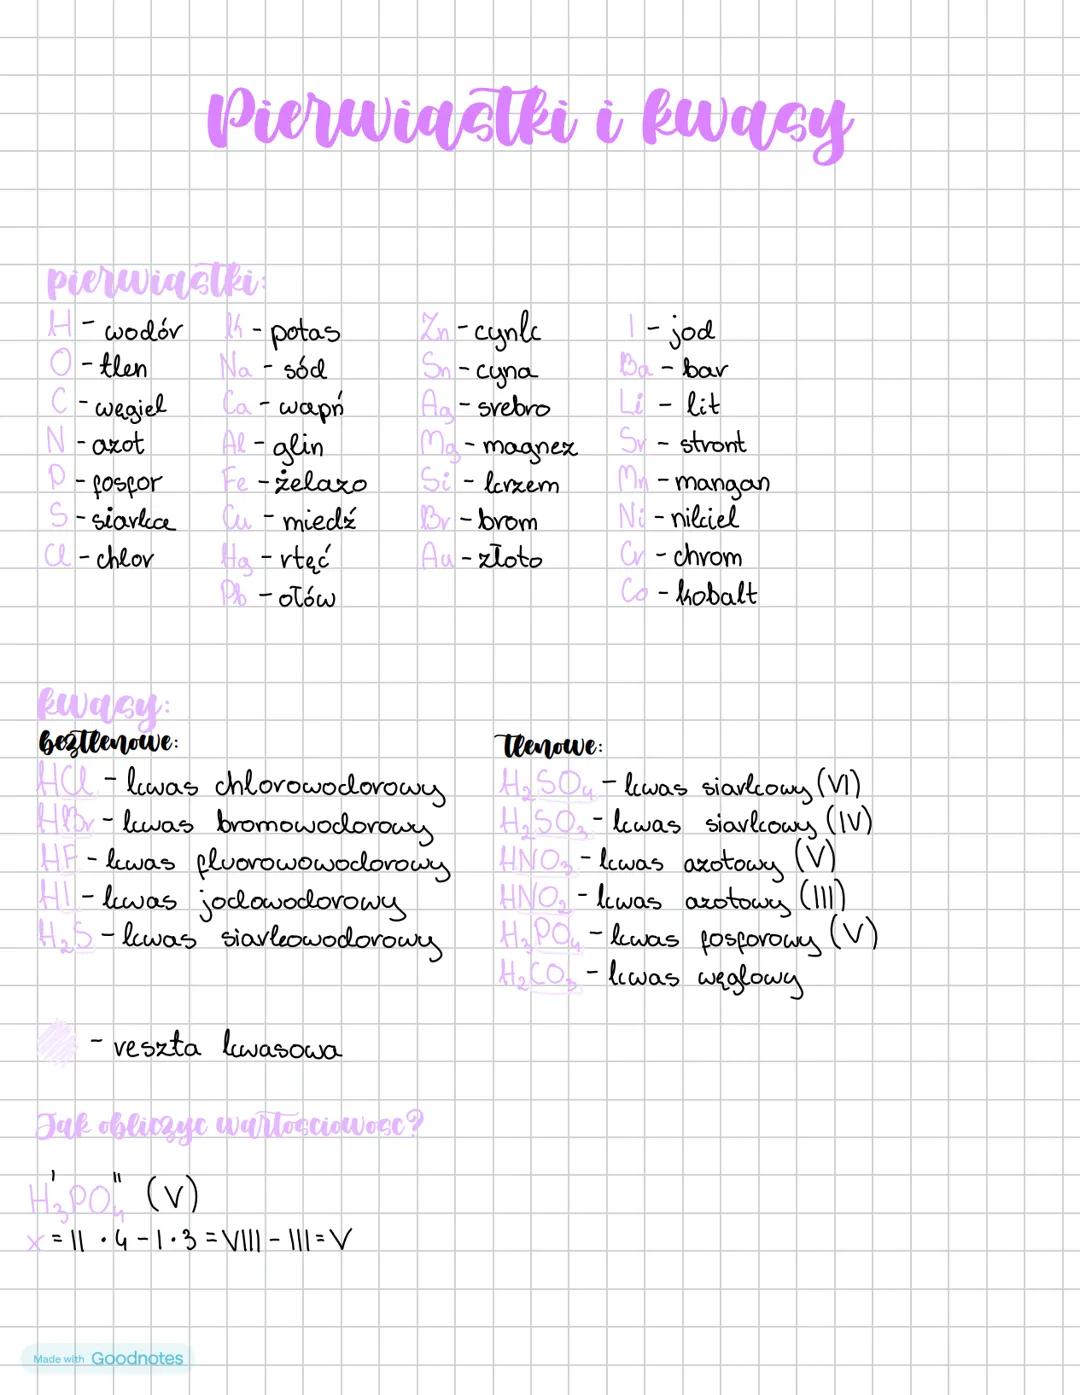 Pierwiastki i kwasy
pierwiastki:
H - wodór
O - tlen
C - węgiel
N - azot
P - fosfor
S - siarka
Cl - chlor
K - potas
Na - sód
Ca - wapń
Al - glin
Fe - żelazo
Cu - miedź
Hg - rtęć
Pb - ołów
Zn - cynk
Sn - cyna
Ag - srebro
Mg - magnez
Si - krzem
Br - brom
Au - złoto
I - jod
Ba - bar
Li - lit
Sr - stront
Mn - mangan
Ni - nikiel
Cr - chrom
Co - kobalt
kwasy:
beztlenowe:
HCl - kwas chlorowodorowy
HBr - kwas bromowodorowy
HF - kwas fluorowowodorowy
HI - kwas jodowodorowy
H₂S - kwas siarkowodorowy
Tlenowe:
H₂SO₄ - kwas siarkowy (VI)
H₂SO₃ - kwas siarkowy (IV)
HNO₃ - kwas azotowy (V)
HNO₂ - kwas azotowy (III)
H₃PO₄ - kwas fosforowy (V)
H₂CO₃ - kwas węglowy
- reszta kwasowa
Jak obliczyc wartosciowosc?
H₃ᴵPO₄ᴵᴵ (V)
x = II · 4 - I · 3 = VIII - III = V
Made with Goodnotes